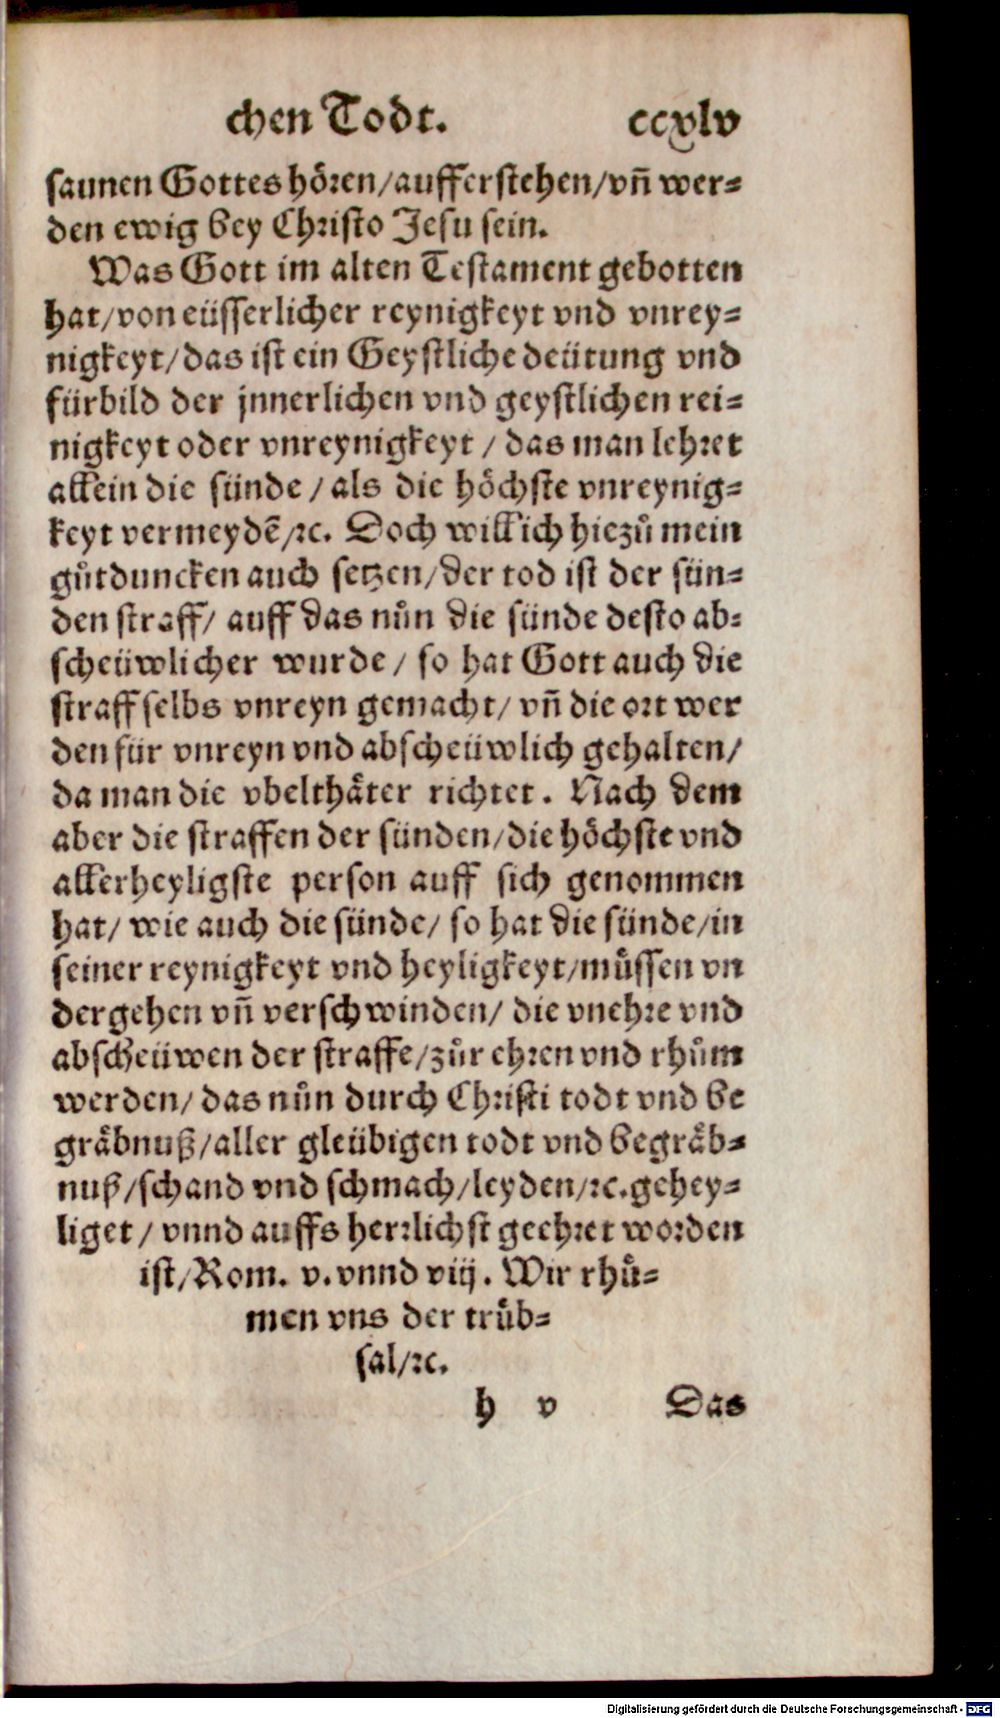 chen Todt. ccxlv
saunen Gottes hören/aufferstehen/vñ wer⸗
den ewig bey Christo Jesu sein.
Was Gott im alten Testament gebotten
hat/von eüsserlicher reynigkeyt vnd vnrey⸗
nigkeyt/das ist ein Geystliche deütung vnd
fürbild der jnnerlichen vnd geystlichen rei⸗
nigkeyt oder vnreynigkeyt / das man lehret
allein die sünde / als die höchste vnreynig⸗
keyt vermeydẽ/ꝛc. Doch will ich hiezů mein
gůtduncken auch setzen/der tod ist der sün⸗
den straff/ auff das nůn die sünde desto ab⸗
scheüwlicher wurde / so hat Gott auch die
straff selbs vnreyn gemacht/ vñ die ort wer
den für vnreyn vnd abscheüwlich gehalten/
da man die vbelthäter richtet. Nach dem
aber die straffen der sünden/die höchste vnd
allerheyligste person auff sich genommen
hat/ wie auch die sünde/ so hat die sünde/in
seiner reynigkeyt vnd heyligkeyt/müssen vn
dergehen vñ verschwinden/ die vnehre vnd
abscheüwen der straffe/zůr ehren vnd rhům
werden/ das nůn durch Christi todt vnd be
gräbnuß/aller gleübigen todt vnd begräb⸗
nuß/schand vnd schmach/leyden/ꝛc.gehey⸗
liget / vnnd auffs herrlichst geehret worden
ist/Rom. v.vnnd viij. Wir rhů⸗
men vns der trüb⸗
sal/ꝛc.
h v Das
Digitalisierung gefördert durch die Deutsche Forschungsgemeinschaft - DFG